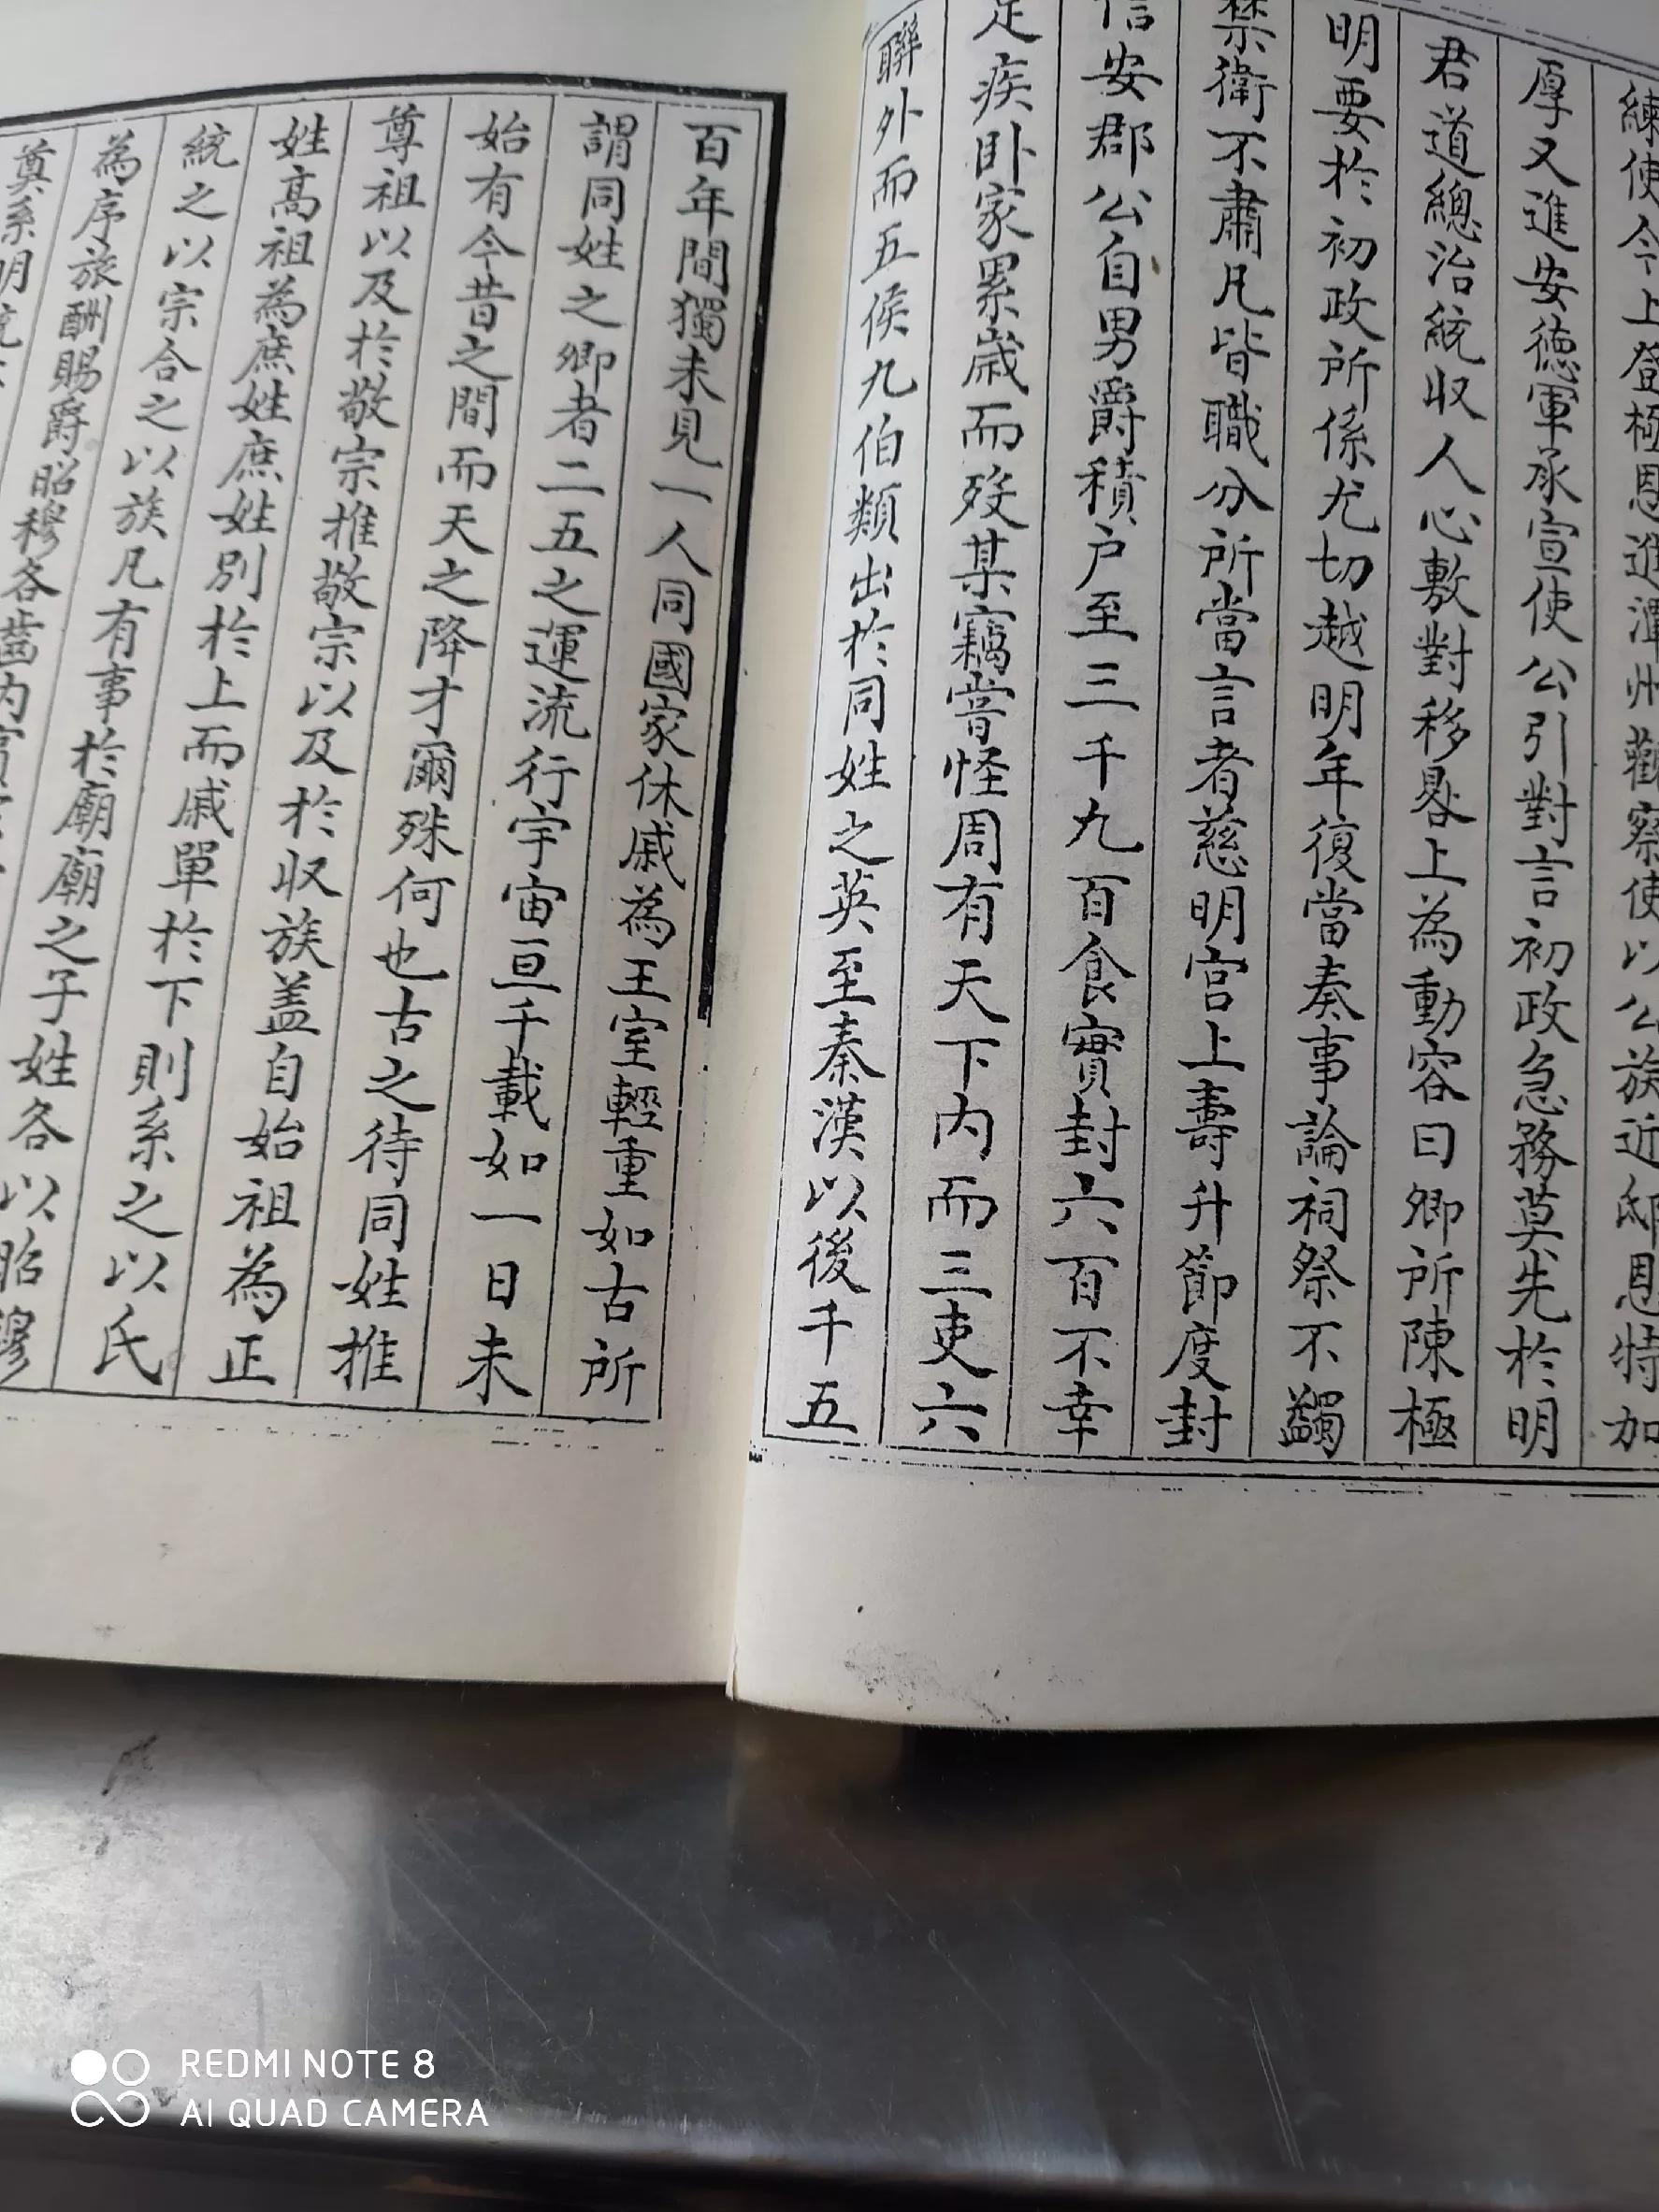 練使今上登極恩進潭州觀察使以公族近邸恩特加
厚又進安德軍承宣使公引對言初政急務莫先於明
君道總治統收人心敷對移晷上為動容曰卿所陳極
明要於初政所係尤切越明年復當奏事論祠祭不蠲
禁衛不肅凡皆職分所當言者慈明宮上壽升節度封
信安郡公自男爵積户至三千九百食實封六百不幸
足疾卧家累歲而歿某竊嘗怪周有天下内而三吏六
聯外而五侯九伯類出於同姓之英至秦漢以後千五
百年間獨未見一人同國家休戚為王室輕重如古所
謂同姓之卿者二五之運流行宇宙亘千載如一日未
始有今昔之間而天之降才爾殊何也古之待同姓推
尊祖以及於敬宗推敬宗以及於収族盖自始祖為正
姓高祖為庶姓庶姓别於上而戚單於下則系之以氏
統之以宗合之以族凡有事於廟廟之子姓各以昭穆
為序旅酬賜爵昭穆各齒内
奠系明
REDMI NOTE 8
AI QUAD CAMERA